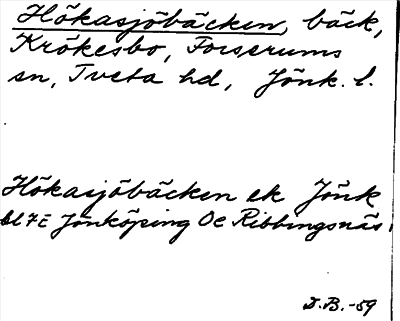 Hökasjöbäcken, bäck,
Krökesbo, Forserums
sn, Tveta hd, Jönk. l.
Hökasjöbäcken ek Jönk
bl 7E Jönköping Oe Ribbingsnäs
D.B.-59